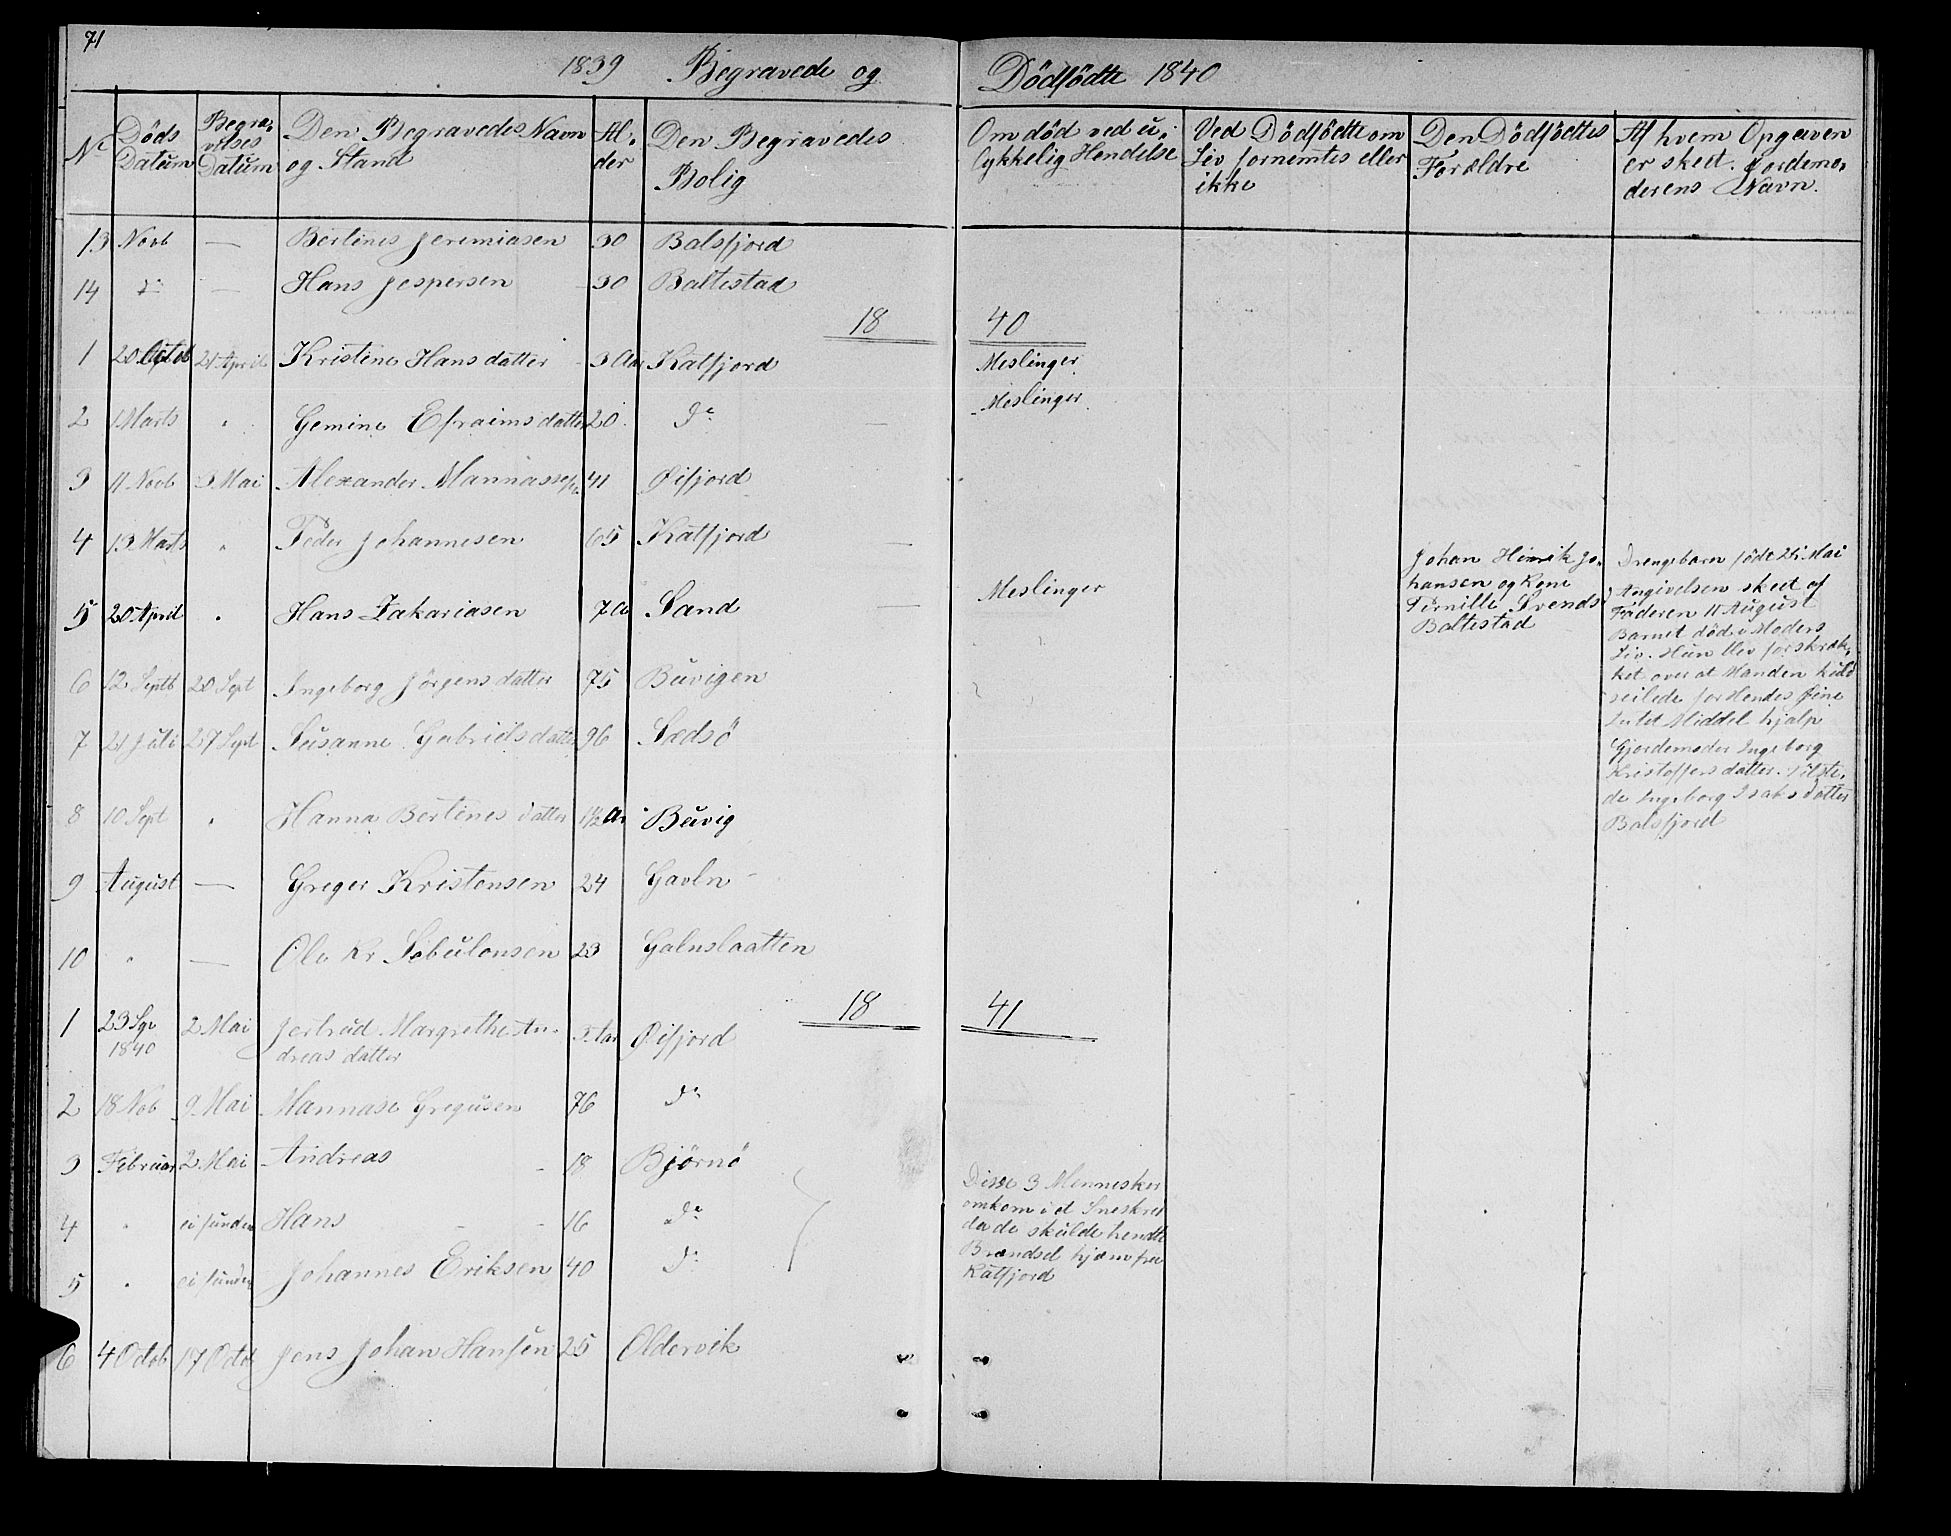 71
1839 Begravede og Dödfödte 1840
N
Döds Datum
Begravelses Datum
Den Begravedes Navn og Stand
Alder
Den Begravedes Bolig
Om död ved ulykkelig Hendelse
Ved Dödfödte om Liv fornemtes eller ikke
Den Dödfödtes Forældre
Af hvem Opgaven er skeet. Jordemoderens Navn.
13 Novb — Bertines Jeremiasen 30 Balsfjord
14 d: — Hans Jespersen 30 Baltestad
18 40
1 20 Octob 21 April Kristine Hansdatter 3 Aar Katfjord Meslinger
2 1 Marts " Gemine Efraimsdatter 20 do Meslinger
3 11 Novb 3 Mai Alexander Mannassesen 41 Øifjord
4 13 Marts " Peder Johannesen 65 Katfjord
5 20 April " Hans Zakariasen 7 Sand Meslinger
Johan Hinrik Jo-
hansen og Kone
Pernille Svends
Baltestad
Drengebarn födt 25 Mai
Angivelsen skeet af
Faderen 11 August
Barnet död i Moders
Liv. Hun blev forskræk-
ket over at Manden kuld
seilede for Hendes Øine
Intet Middel hjalp
Gjordemoder Ingeborg
Kristoffersdatter.
de Ingeborg Isaksdatter
Balsfjord
6 12 Septb 20 Sept Ingeborg Jörgensdatter 75 Buvigen
7 21 Juli 27 Sept Susanne Gabrielsdatter 96 Sædsö
8 10 Sept " Hanna Bertinesdatter 1½ Buvig
9 August — Greger Kristensen 24 Gavln
10 " — Ole Kr Sebulonsen 23 Galnslaatten
18 41
1 23 1840 2 Mai Jertrud Margrethe An-
dreasdatter 5 Aar Øifjord
2 18 Nob 9 Mai Mannase Gregusen 76 do
3 Februar 2 Mai Andreas - 18 Björnö
4 " ei funden Hans - - 16 do
5 " ei funden Johannes Eriksen 40 do
Disse 3 Mennesker
omkom i d Sneskred
da de skulde hendte
Brændsel hjem fra
Katfjord
6 4 Octob 17 Octob Jens Johan Hansen 25 Oldervik